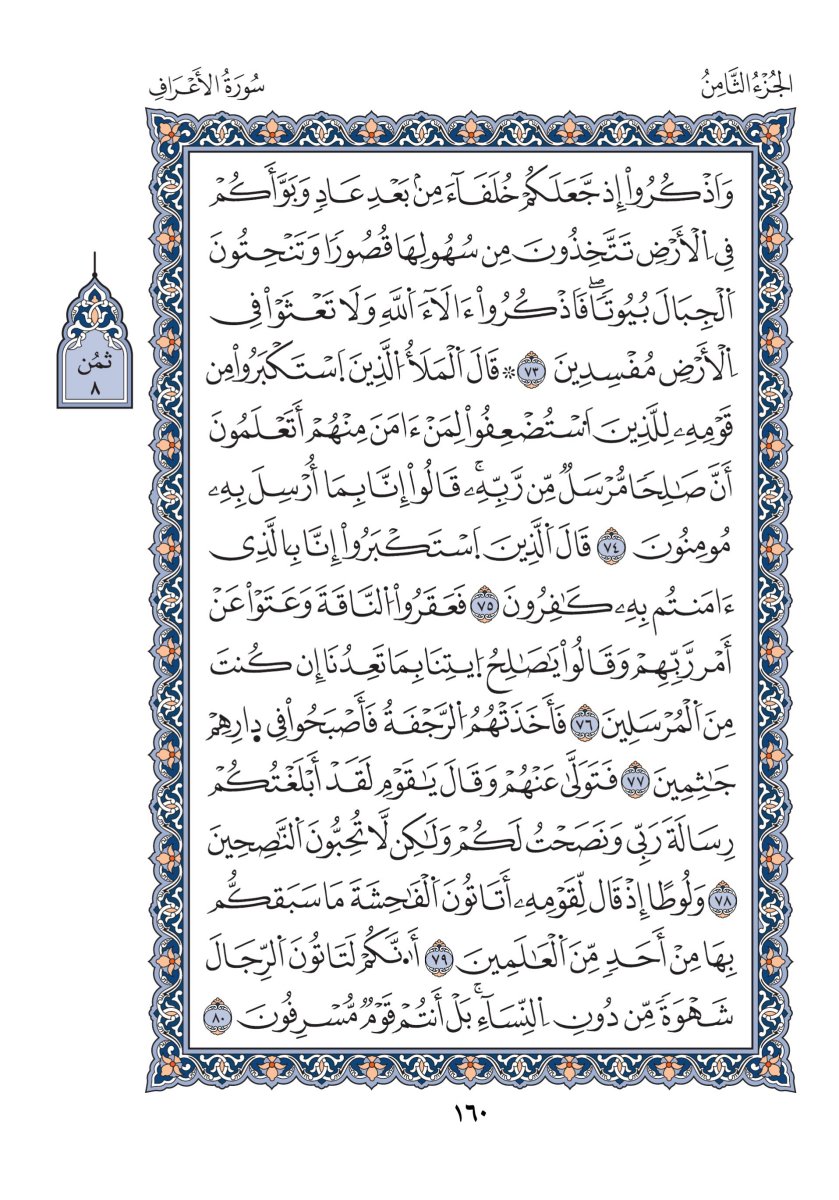 الجُزْءُ الثَّامِنُ
سُورَةُ الأَعْرَافِ
وَاَذْكُرُواْ إِذ جَّعَلَكُمْ خُلَفَآءَ مِنۢ بَعْدِ عَادٖ وَبَوَّأَكُمْ
فِي اِلْأَرْضِ تَتَّخِذُونَ مِن سُهُولِهَا قُصُورٗا وَتَنْحِتُونَ
اَلْجِبَالَ بُيُوتٗاۖ فَاَذْكُرُواْ ءَالَآءَ اَللَّهِ وَلَا تَعْثَوْاْ فِي
اِلْأَرْضِ مُفْسِدِينَ ٧٣ ۞ قَالَ اَلْمَلَأُ اُلَّذِينَ اَسْتَكْبَرُواْ مِن
قَوْمِهِۦ لِلَّذِينَ اَسْتُضْعِفُواْ لِمَنْ ءَامَنَ مِنْهُمْ أَتَعْلَمُونَ
أَنَّ صَٰلِحٗا مُّرْسَلٞ مِّن رَّبِّهِۦۚ قَالُواْ إِنَّا بِمَا أُرْسِلَ بِهِۦ
مُومِنُونَ ٧٤ قَالَ اَلَّذِينَ اَسْتَكْبَرُواْ إِنَّا بِالَّذِي
ءَامَنتُم بِهِۦ كَٰفِرُونَ ٧٥ فَعَقَرُواْ اُلنَّاقَةَ وَعَتَوْاْ عَنْ
أَمْر رَّبِّهِمْ وَقَالُواْ يَٰصَٰلِحُ اُيتِنَا بِمَا تَعِدُنَا إِن كُنتَ
مِنَ اَلْمُرْسَلِينَ ٧٦ فَأَخَذَتْهُمُ اُلرَّجْفَةُ فَأَصْبَحُواْ فِي دِارِهِمْ
جَٰثِمِينَ ٧٧ فَتَوَلَّىٰ عَنْهُمْ وَقَالَ يَٰقَوْمِ لَقَدْ أَبْلَغْتُكُمْ
رِسَالَةَ رَبِّي وَنَصَحْتُ لَكُمْ وَلَٰكِن لَّا تُحِبُّونَ اَلنَّٰصِحِينَ
٧٨ وَلُوطًا إِذْ قَال لِّقَوْمِهِۦ أَتَاتُونَ اَلْفَٰحِشَةَ مَا سَبَقكُّم
بِهَا مِنْ أَحَدٖ مِّنَ اَلْعَٰلَمِينَ ٧٩ أَ۟نَّكُمْ لَتَاتُونَ اَلرِّجَالَ
شَهْوَةٗ مِّن دُونِ اِلنِّسَآءِۚ بَلْ أَنتُمْ قَوْمٞ مُّسْرِفُونَ ٨٠
ثُمُن
٨
١٦٠